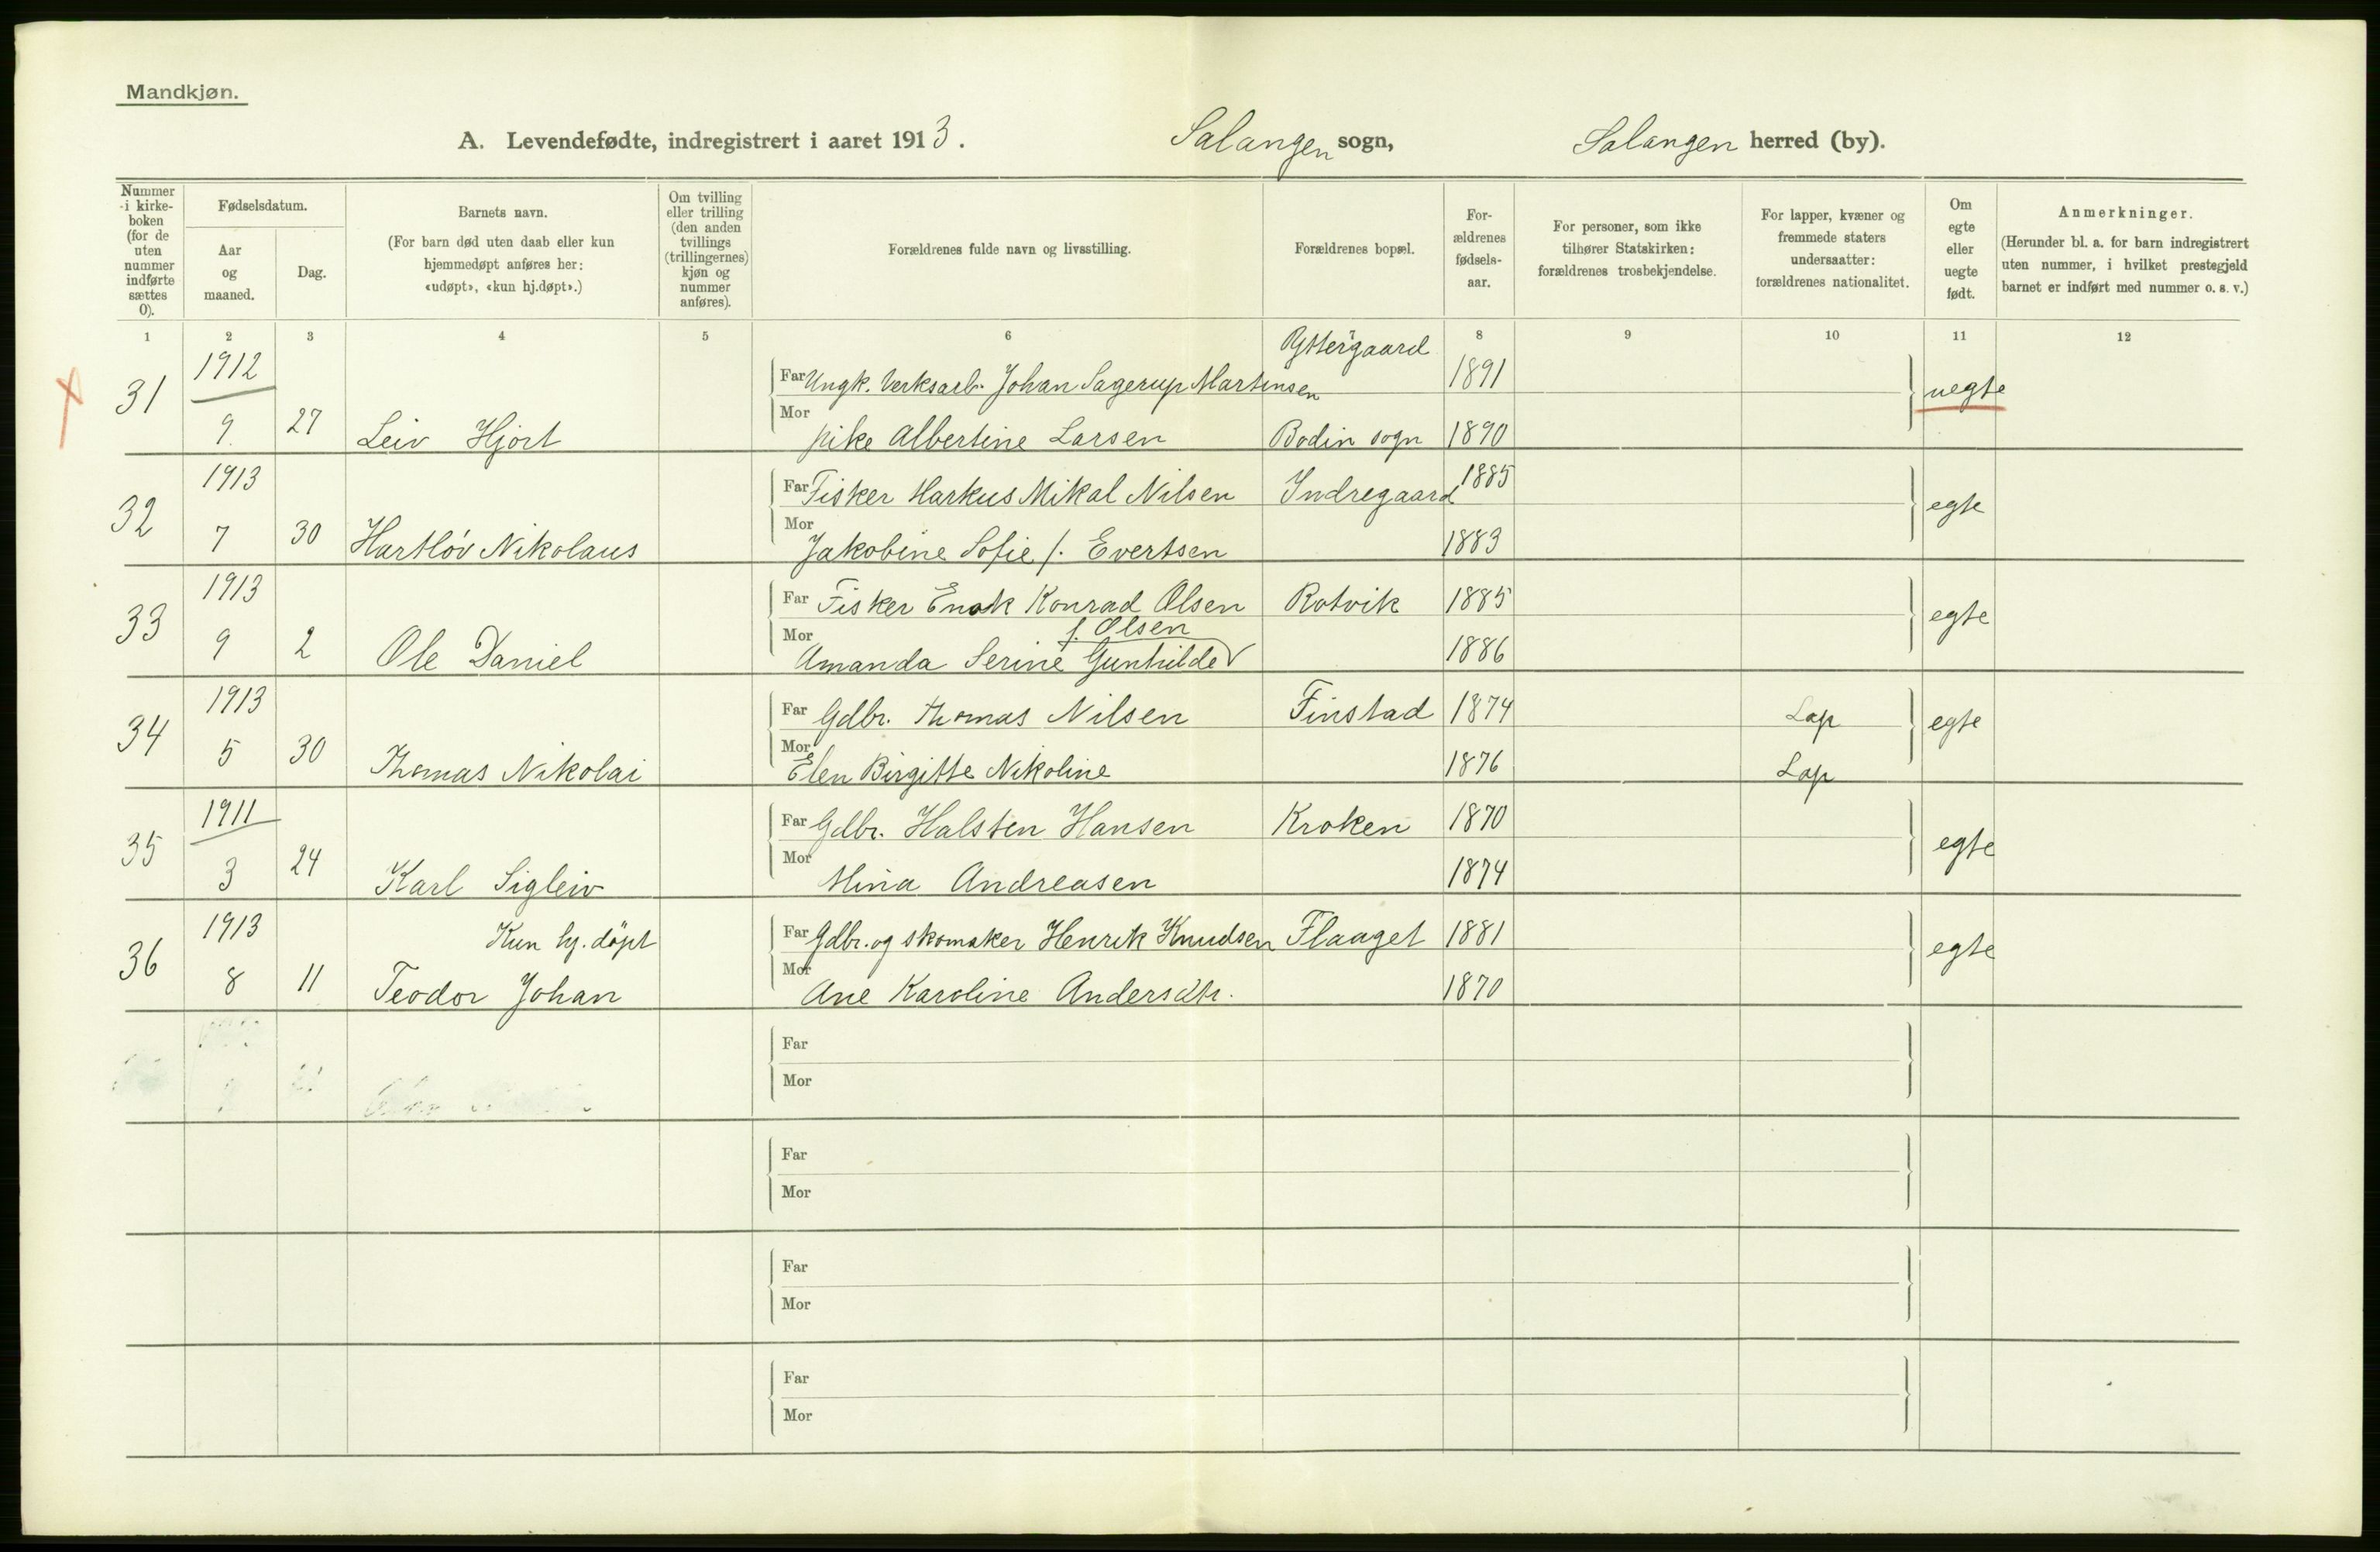 Mandkjøn.
A. Levendefødte, indregistrert i aaret 1913. Salangen sogn, Salangen herred (by).
Nummer i kirke-boken (for de uten nummer indførte sættes 0).
Fødselsdatum.
Aar og maaned.
Dag.
Barnets navn.
(For barn død uten daab eller kun hjemmedøpt anføres her: «udøpt», «kun hj.døpt».)
Om tvilling eller trilling (den anden tvillings (trillingernes) kjøn og nummer anføres).
Forældrenes fulde navn og livsstilling.
Forældrenes bopæl.
For-ældrenes fødsels-aar.
For personer, som ikke tilhører Statskirken: forældrenes trosbekjendelse.
For lapper, kvæner og fremmede staters undersaatter: forældrenes nationalitet.
Om egte eller uegte født.
Anmerkninger.
(Herunder bl. a. for barn indregistrert uten nummer, i hvilket prestegjeld barnet er indført med nummer o. s. v.)
1 2 3 4 5 6 7 8 9 10 11 12
31 1912 Far Ungk. Verksarb. Johan Sagerup Martinsen Yttergaard 1891 uegte
9. 27 Leiv Hjort Mor pike Albertine Larsen Bodin sogn 1890
32 1913 Far Fisker Markus Mikal Nilsen Indregaard 1885 egte
7 30 Hartløv Nikolaus Mor Jakobine Sofie f. Evertsen 1883
33 1913 Far Fisker Enok Konrad Olsen Rotvik 1885 egte
9 2 Ole Daniel Mor Amanda Serine Gunhilde f. Olsen 1886
34 1913 Far Gdbr. Thomas Nilsen Finstad 1874 Lap egte
5 30 Thomas Nikolai Mor Elen Birgitte Nikoline 1876 Lap
35 1911 Far Gdbr. Halsten Hansen Kroken 1870 egte
3 24 Karl Sigleiv Mor Mina Andreasen 1874
36 1913 Kun hj. døpt Far Gdbr. og skomaker Henrik Knudsen Flaaget 1881 egte
8 11 Teodor Johan Mor Ane Karoline Andersdtr. 1870
Far
Mor
Far
Mor
Far
Mor
Far
Mor